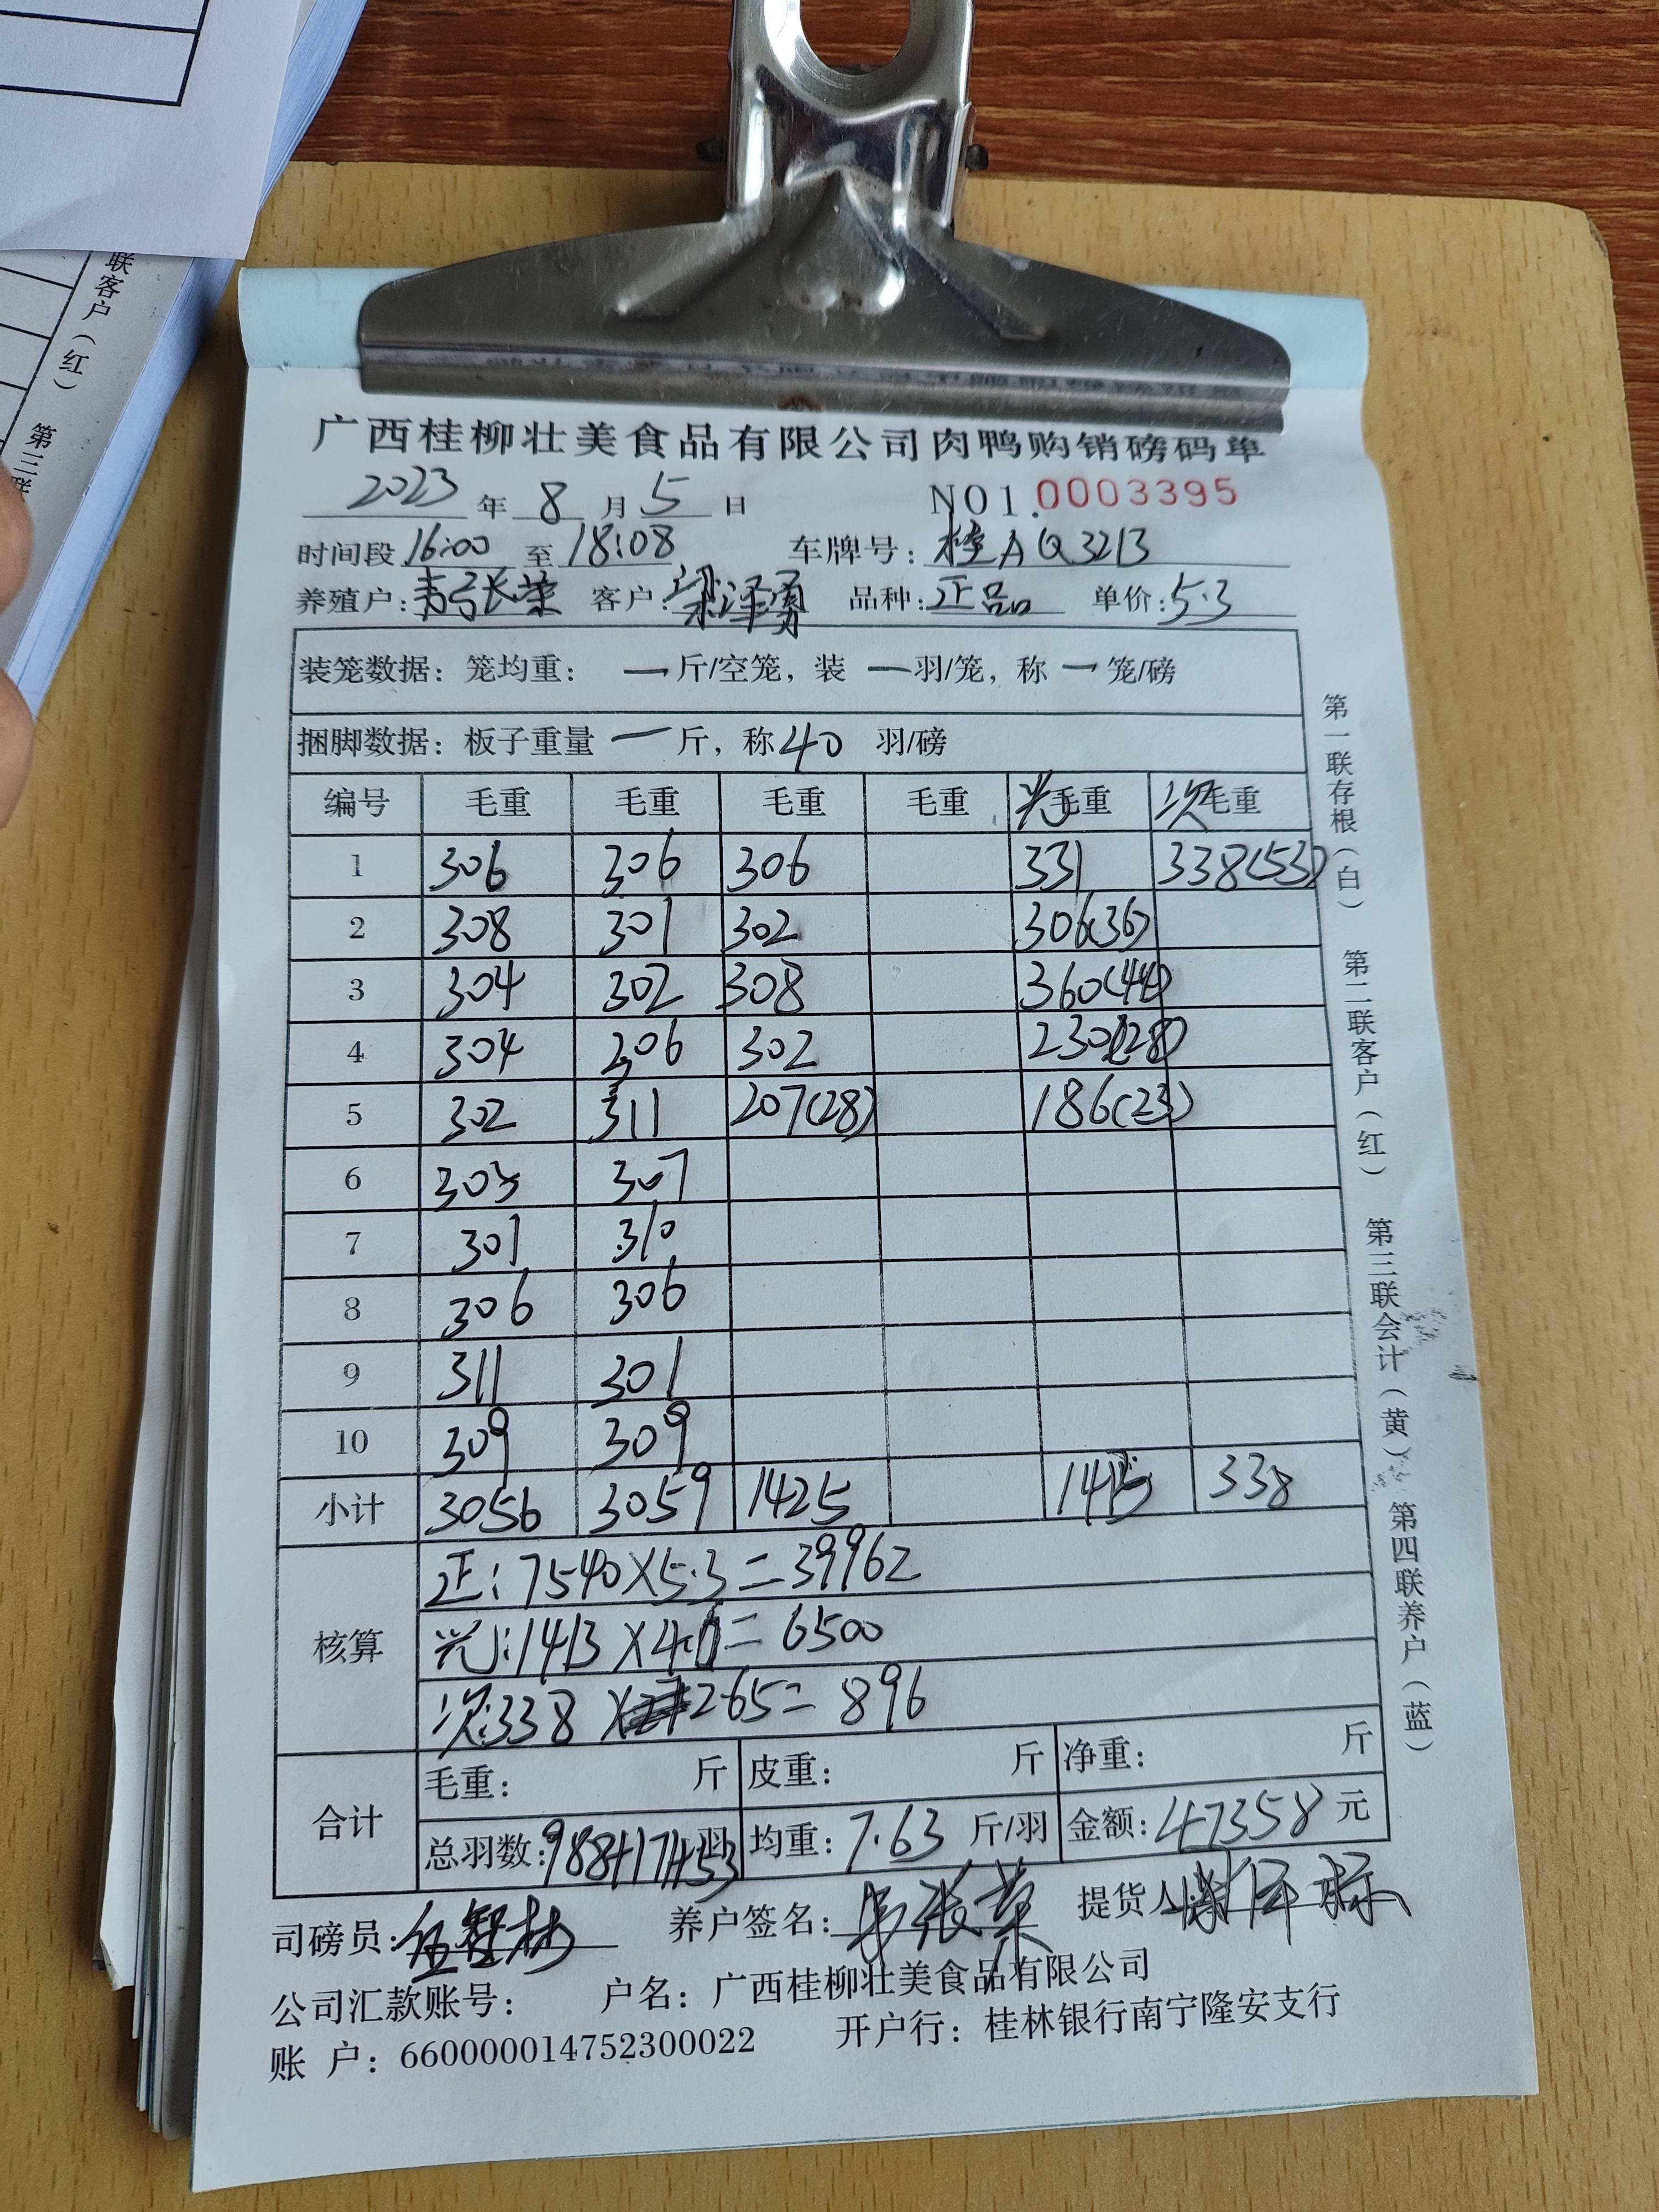 联客户（红）
第三联
广西桂柳壮美食品有限公司肉鸭购销磅码单
2023年8月5日 NO1.0003395
时间段16:00至18:08 车牌号：桂AQ3213
养殖户：韦张荣 客户：梁泽勇 品种：正品 单价：5.3
装笼数据：笼均重：一斤/空笼，装一羽/笼，称一笼/磅
捆脚数据：板子重量一斤，称40羽/磅
编号 毛重 毛重 毛重 毛重 毛重 次毛重
1 306 306 306 331 338(53)
2 308 301 302 306(36)
3 304 302 308 360(44)
4 304 306 302 230(28)
5 302 311 207(28) 186(23)
6 305 307
7 301 310
8 306 306
9 311 301
10 309 309
小计 3056 3059 1425 1413 338
核算
正：7540×5.3=39962
1413×4.6=6500
次：338×2.65=896
合计
毛重： 斤 皮重： 斤 净重： 斤
总羽数：988+171+53羽 均重：7.63斤/羽 金额：47358元
司磅员： 养户签名：韦张荣 提货人：
公司汇款账号： 户名：广西桂柳壮美食品有限公司
账 户：660000014752300022 开户行：桂林银行南宁隆安支行
第一联存根（白） 第二联客户（红） 第三联会计（黄） 第四联养户（蓝）